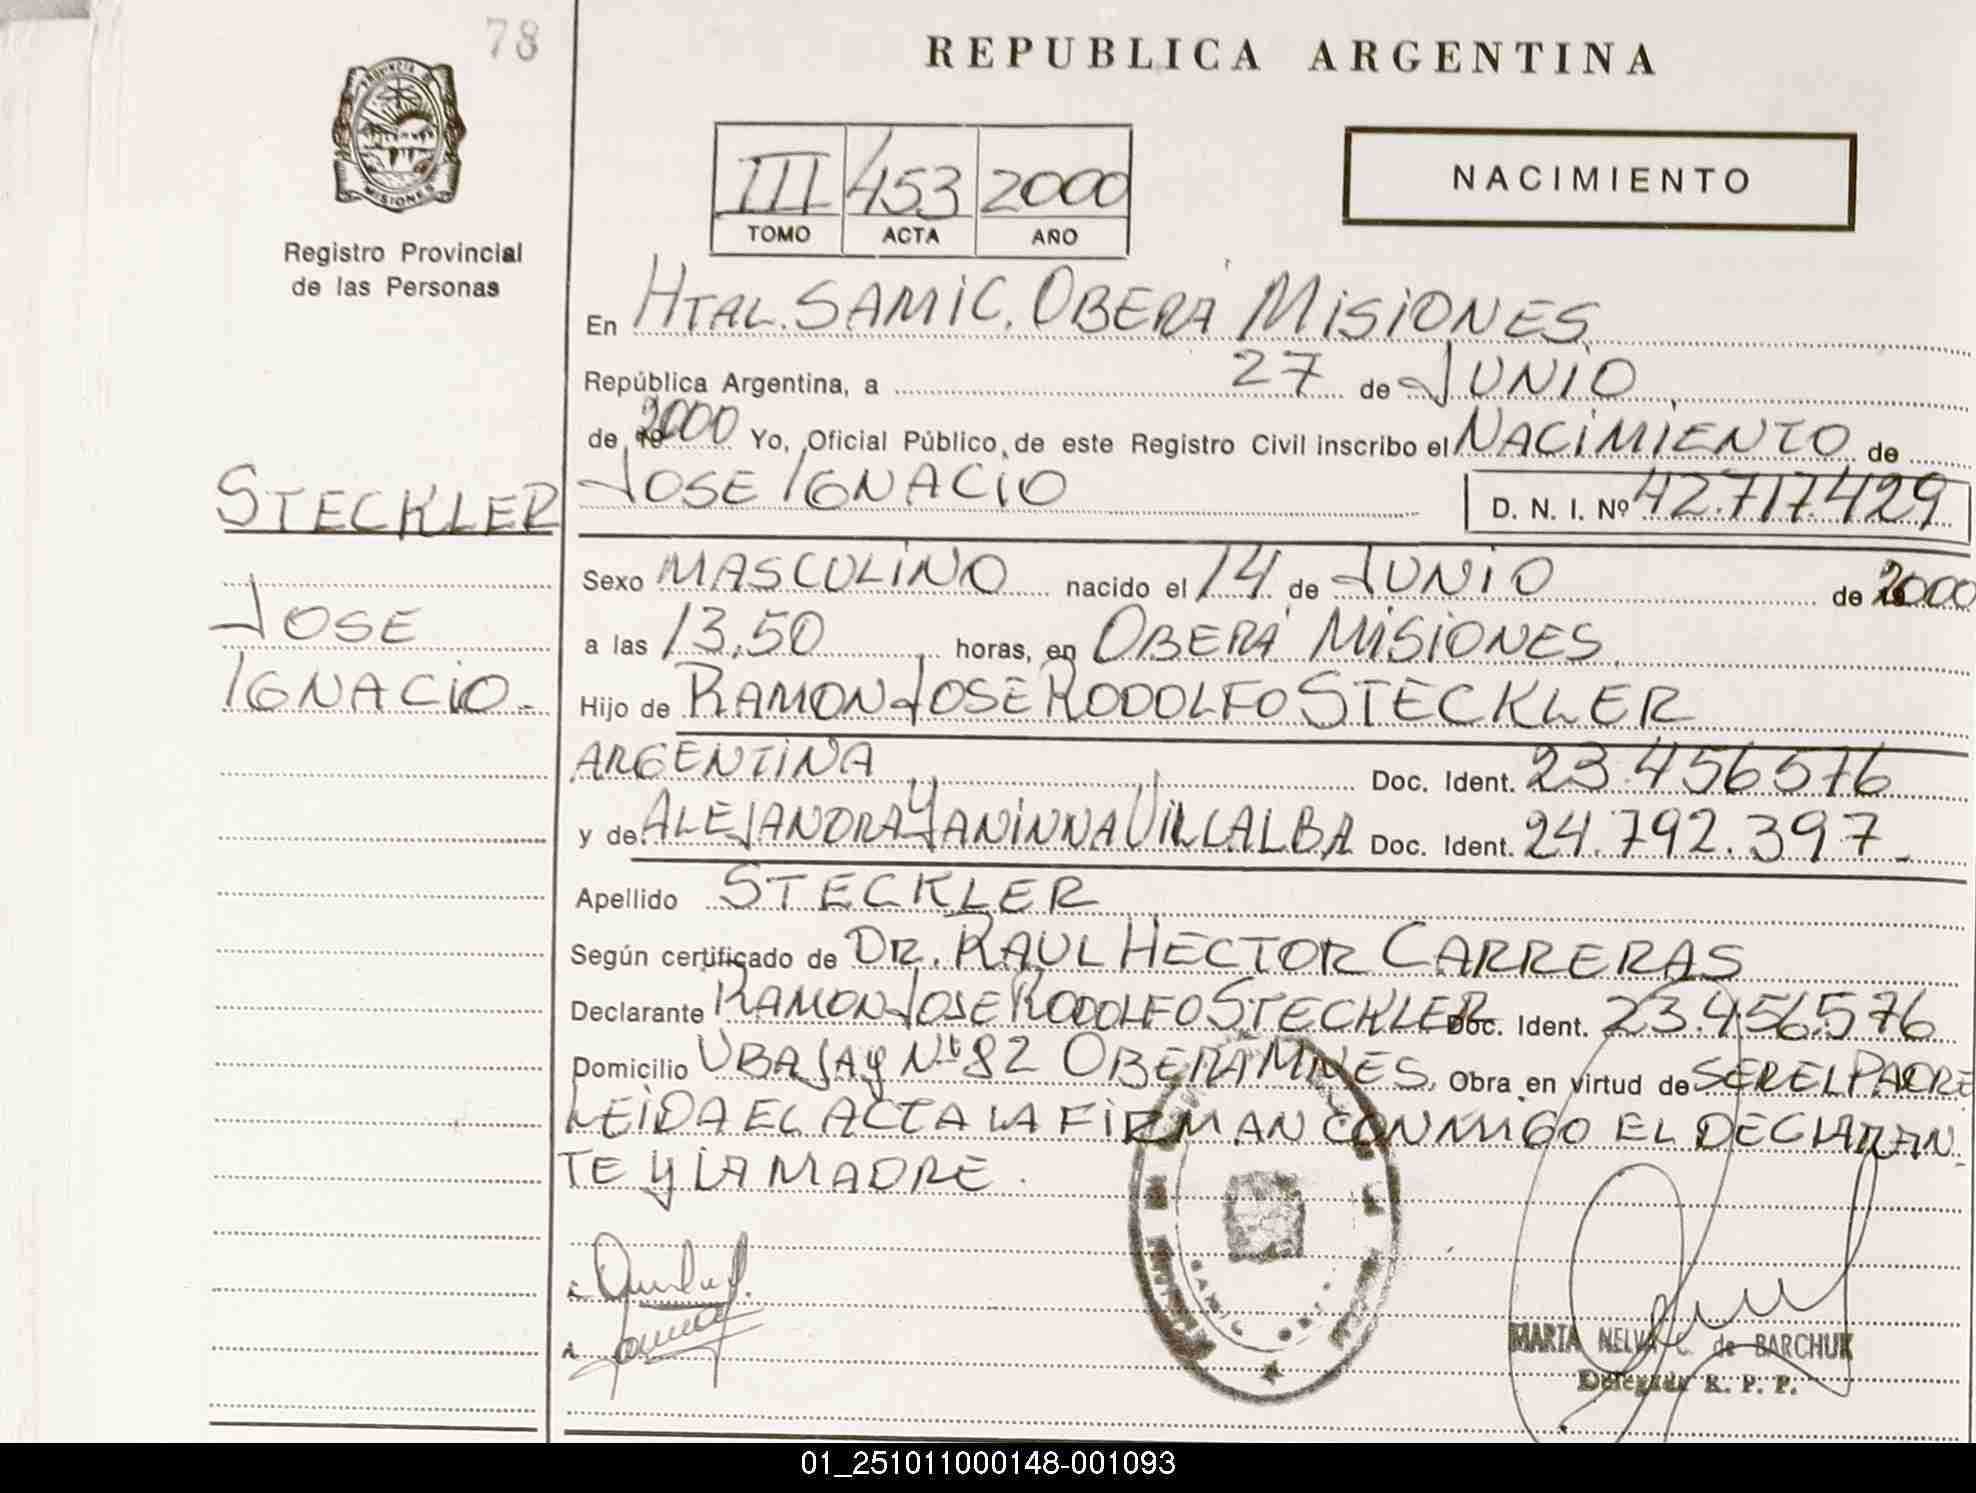 78
REPUBLICA ARGENTINA
PROVINCIA D
MISIONES
Registro Provincial
de las Personas
III 453 2000
TOMO ACTA AÑO
NACIMIENTO
En HTAL. SAMIC. OBERA MISIONES
República Argentina, a 27 de JUNIO
de 2000 Yo, Oficial Público de este Registro Civil inscribo el NACIMIENTO de
STECKLER
JOSE IGNACIO D. N. I. Nº 42.717.429
Sexo MASCULINO nacido el 14 de JUNIO de 2000
JOSE
a las 13,50 horas, en OBERA MISIONES
IGNACIO.-
Hijo de RAMON JOSE RODOLFO STECKLER
ARGENTINA Doc. Ident. 23.456576
y de ALEJANDRA YANINNA VILLALBA Doc. Ident. 24.792.397.-
Apellido STECKLER
Según certificado de DR. RAUL HECTOR CARRERAS
Declarante RAMON JOSE RODOLFO STECKLER Doc. Ident. 23.456.576
Domicilio UBAJAY Nº 82 OBERA MNES. Obra en virtud de SER EL PADRE
LEIDA EL ACTA LA FIRMAN CONMIGO EL DECLARAN-
TE Y LA MADRE.
MARTA NELVA C. de BARCHUK
Delegada R. P. P.
01_251011000148-001093